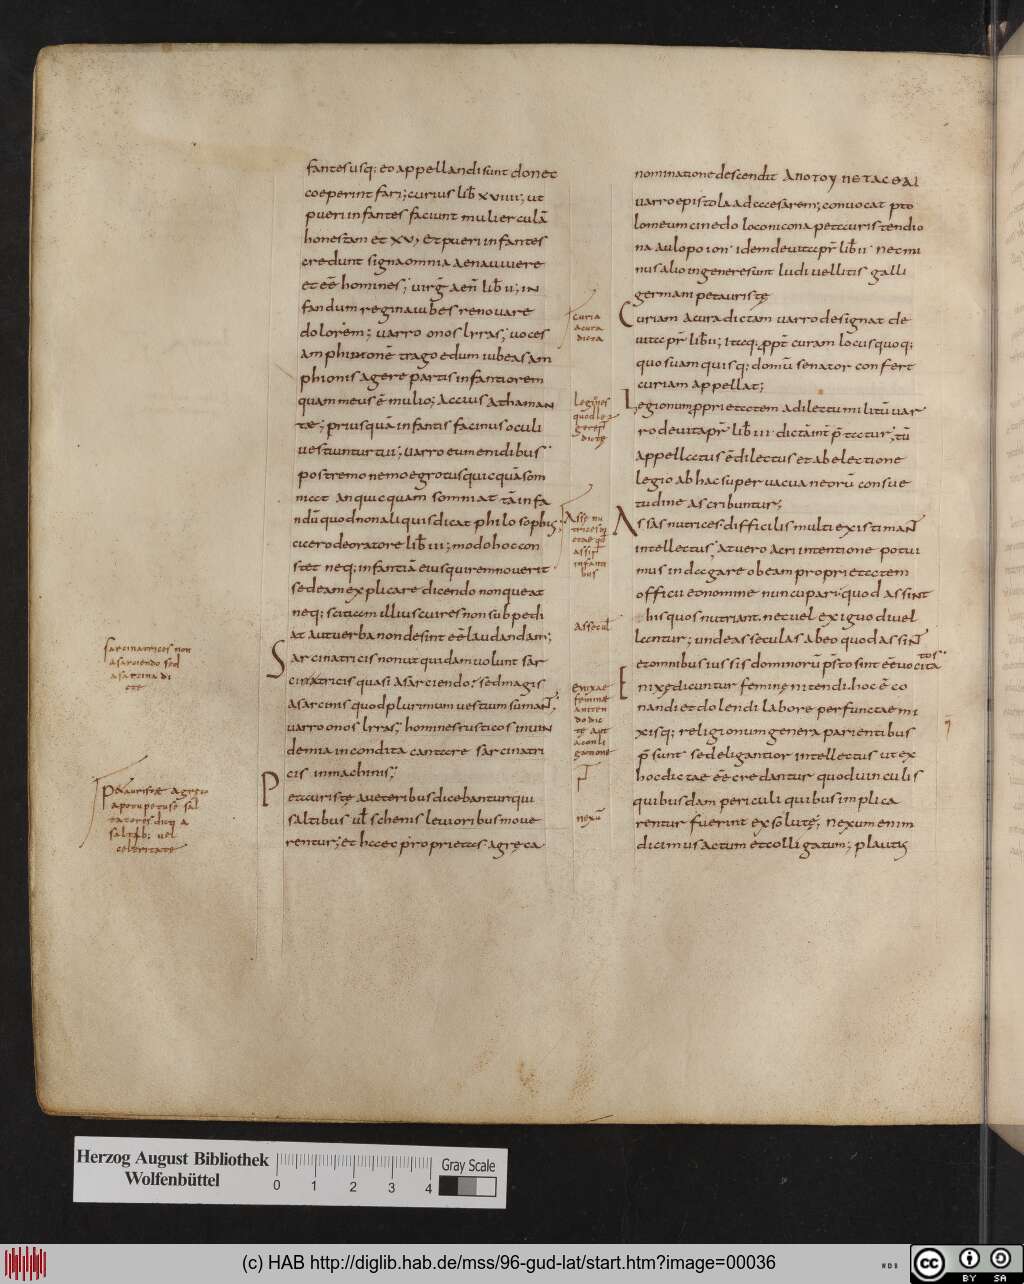 fantes usq; eo appellandi sunt donec
coeperint fari; cuius lib̄ xviiii; ut
pueri infantes faciunt mulierculā
honestam et xv; et pueri infantes
credunt signa omnia aena vivere
et eē homines; virḡ aen̄ lib̄ ii; in
fandum regina iubes renovare
dolorem; varro onos lyras; voces
amphionē tragoedum iubeas am
phionis agere partis infantiorem
quam meus ē mulio; Accius Athaman
te; priusquā infantis facinus oculi
vescuntur tui; varro eumenidibus
postremo nemo egrotus quicquā som
niat an quicquam somniat tā infa
ndū quod non aliquis dicat philosophus;
cicero de oratore lib̄ iii; modo hoc con
stet neq; infantiā eius qui rem noverit
sed eam explicare dicendo non queat
neq; scitiam illius cui res non subpedi
at aut verba non desint eē laudandam;
Sarcinatricis non ut quidam volunt sar
cinatricis quasi a sarciendo; sed magis
a sarcinis quod plurimum vestium sumant;
varro onos lyras; homines rusticos in vin
demia incondita cantare sarcinatri
cis in machinis;
Petauriste a veteribus dicebantur qui
saltibus ul̄ schenis levioribus move
rentur; et haec proprietas a gręca
sarcinatrices non
a sarciendo sed
a sarcina di
cte
Petauristae a greco
saltib; vel
celeritate
nominatione descendit ΑΠΟΤΟΥ ΠΕΤΑCΘΑΙ
varro epistola ad cesarem; convocat pto
lomeum cinedo loconicona petauristendio
na aulopoion idem de vita pr̄ lib̄ ii nec mi
nus alio in genere sunt ludi vel litis galli
germani petauriste
Curiam a cura dictam varro designat de
vita pr̄ lib̄ ii; itaq; ppt̄ curam locus quoq;
quo suam quisq; domū senator confert
curiam appellat;
Legionum pprietatem a dilectu militū var
ro de vita pr̄ lib̄ iii dictā int̄ p̄tatur; tū
appellatus ē dilectus et ab electione
legio ab hac supervacua neorū consue
tudine ascribuntur;
Assas nutrices difficilis multi existimant
intellectus; at vero acri intentione potui
mus indagare ob eam proprietatem
officii eo nomine nuncupari quod assint
his quos nutriant nec vel exiguo divel
lantur; unde assecula ab eo quod assint
et omnibus iussis dominorū p̄sto sint eē vocita
tos
Enixę dicuntur feminę nitendi hoc ē co
nandi et dolendi labore perfunctae mi
xisq; religionum genera parientibus
p̄sunt sed eligantior intellectus ut ex
hoc dictae eē credantur quod vinculis
quibusdam periculi quibus implica
rentur fuerint exsolutę; nexum enim
dicimus actum et colligatum; plautus
curia
a cura
dicta
Legiones
quod le
dictę
Assę nu
trices
assint
infanti
bus
assecul
Enixae
feminae
a niten
do dic
te aut
a conli
gatione
nexū
Herzog August Bibliothek
Wolfenbüttel
0 1 2 3 4
Gray Scale
(c) HAB http://diglib.hab.de/mss/96-gud-lat/start.htm?image=00036
WDB
cc BY SA